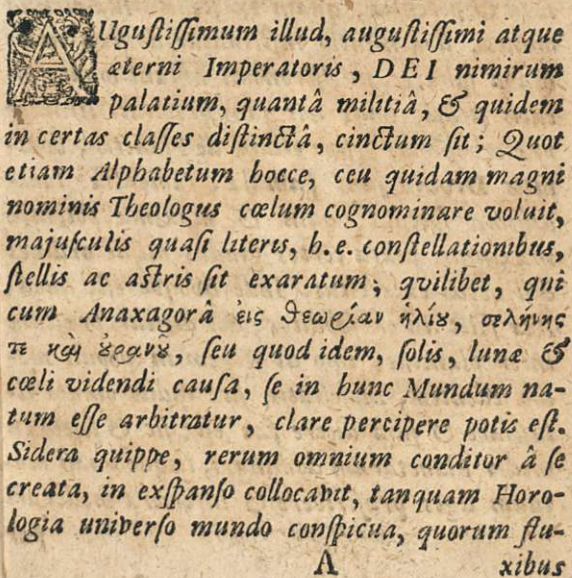 AUguſtiſſimum illud, auguſtiſſimi atque
æterni Imperatoris, DEI nimirum
palatium, quantâ militiâ, & quidem
in certas claſſes diſtinctâ, cinctum ſit; Quot
etiam Alphabetum hocce, ceu quidam magni
nominis Theologus cœlum cognominare voluit,
majuſculis quaſi literis, h. e. conſtellationibus,
ſtellis ac aſtris ſit exaratum; qvilibet, qui
cum Anaxagorâ εἰς θεωρίαν ἡλίȣ, σελήνης
τε καὶ ȣ̓ρανȣ͂, ſeu quod idem, ſolis, lunæ &
cœli videndi cauſa, ſe in hunc Mundum na-
tum eſſe arbitratur, clare percipere potis eſt.
Sidera quippe, rerum omnium conditor â ſe
creata, in exſpanſo collocavit, tanquam Horo-
logia univerſo mundo conſpicua, quorum flu-
A xibus